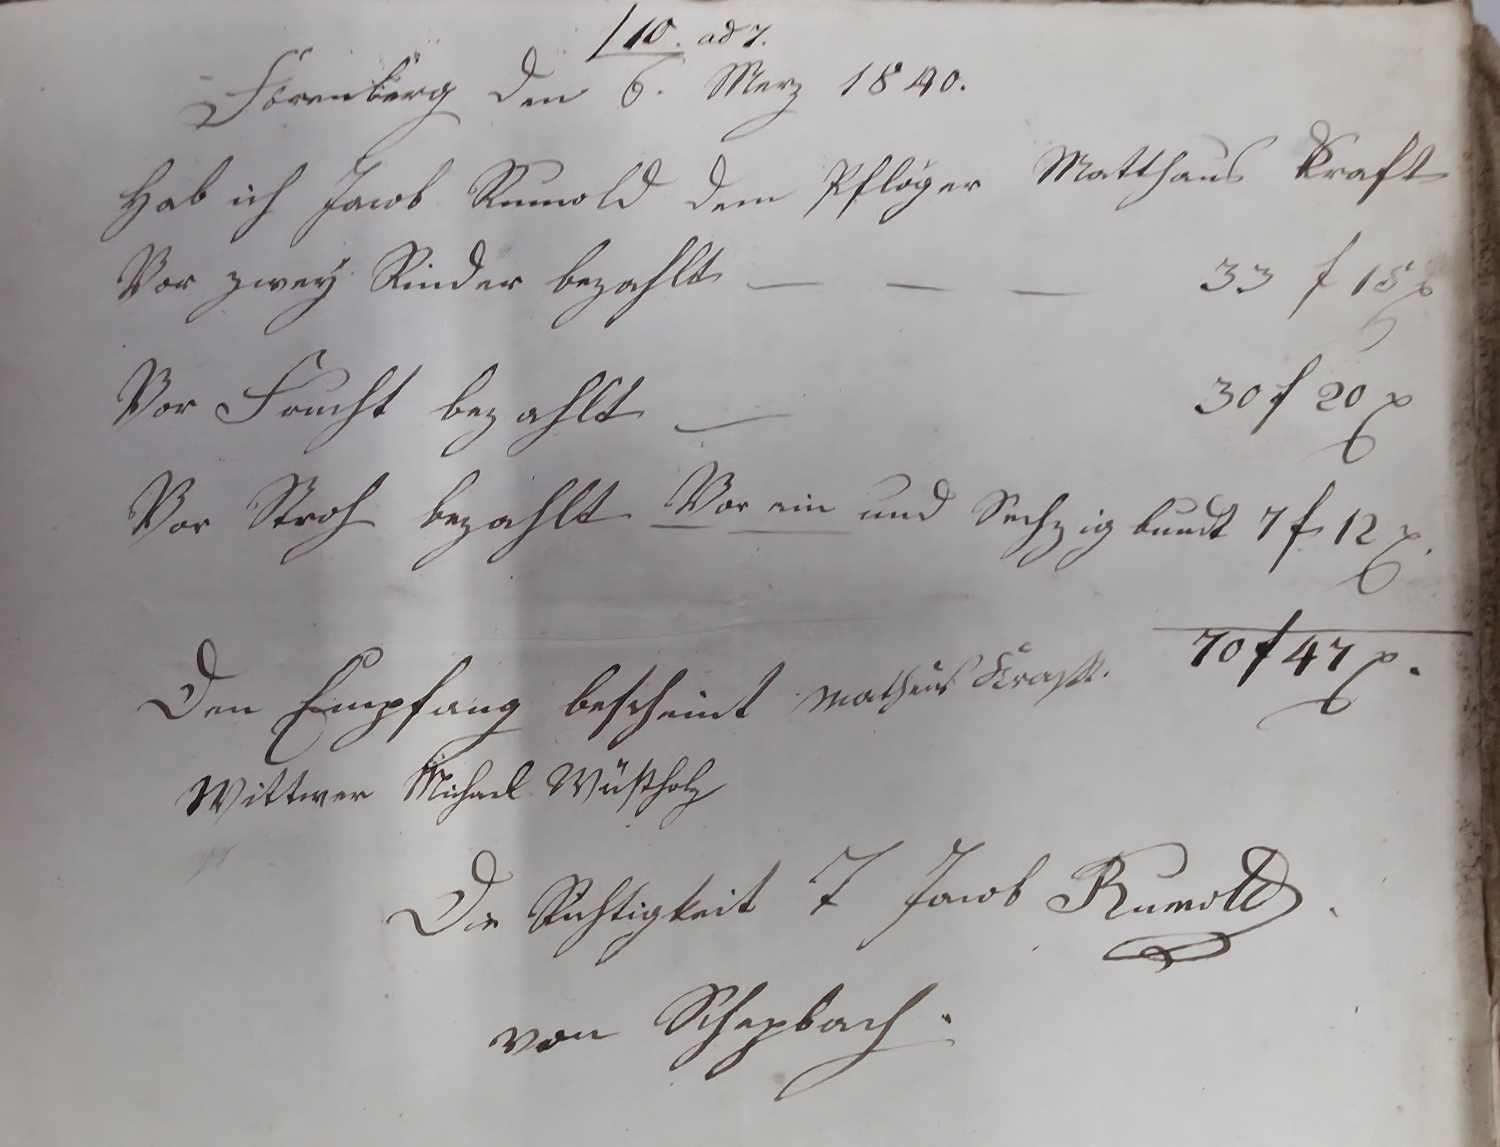 /10. ad 7.
Förenberg den 6. Merz 1840.
Hab ich Jacob Rumold dem Pfloger Matthaus Kraft
Vor zwey Rinder bezahlt — — — 33 f 15 x
Vor Frucht bezahlt — 30 f 20 x
Vor Stroh bezahlt Vor ein und Sechzig bundt 7 f 12 x.
70 f 47 x.
Den Empfang bescheint Matheus Kraft.
Wittwer Michael Wüstholz
Die Richtigkeit T Jacob Rumold.
von Schepbach.